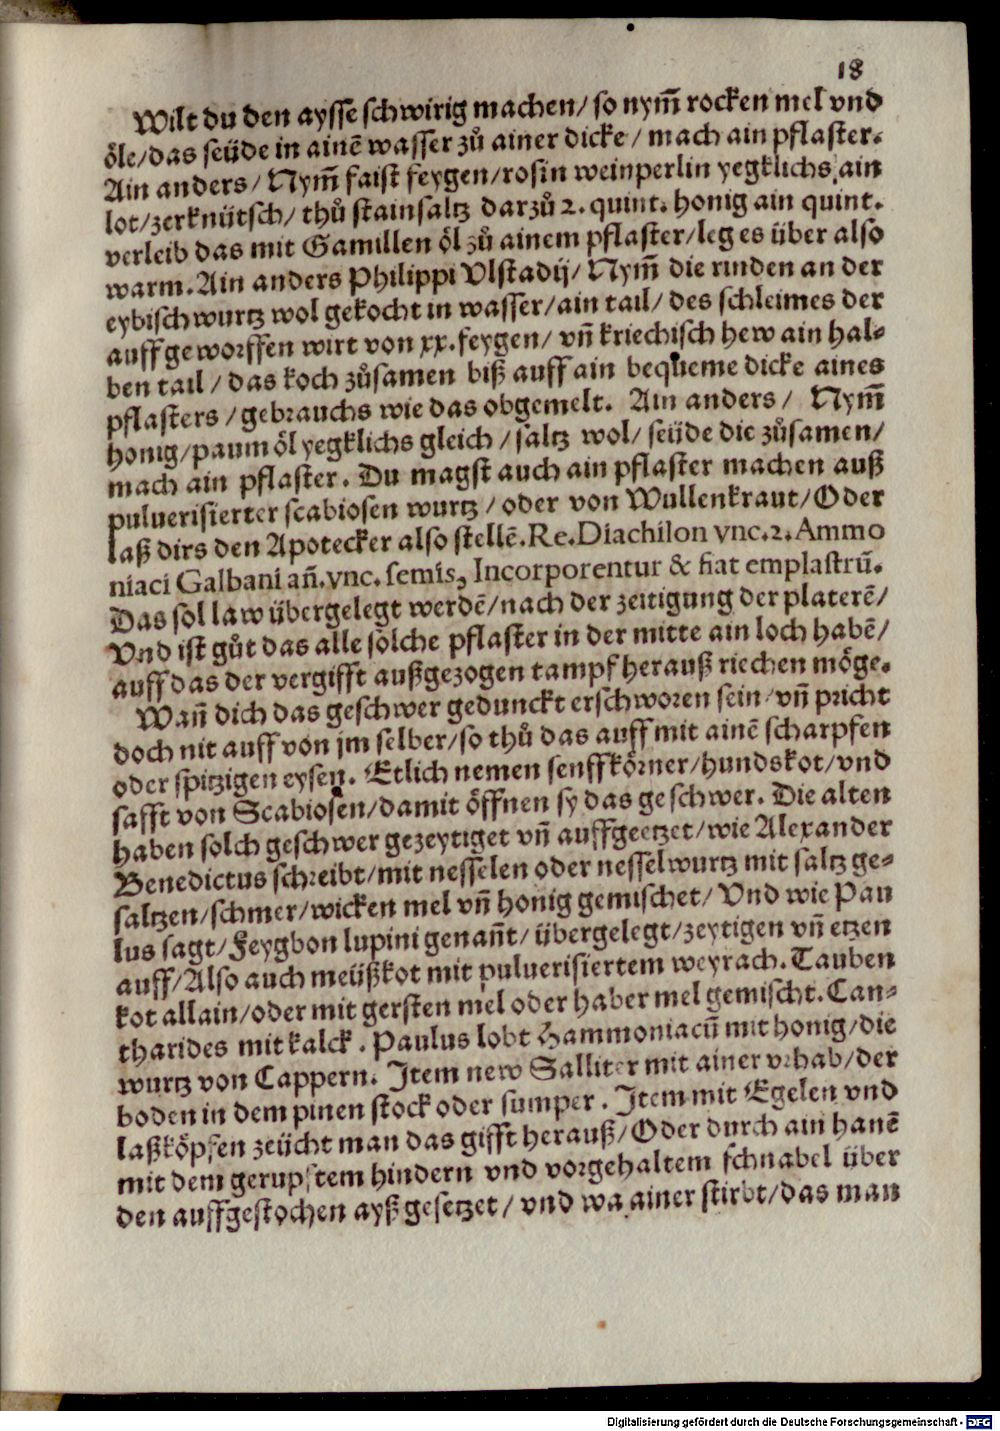 18
Wilt du den aysse schwirig machen/ so nym̄ rocken mel vnd
öle/das seüde in ainē wasser zů ainer dicke/ mach ain pflaster.
Ain anders/ Nym̄ faist feygen/rosin weinperlin yegklichs ain
lot/zerknütsch/ thů stainsaltz darzů 2. quint. honig ain quint.
verleib das mit Gamillen öl zů ainem pflaster/leg es über also
warm. Ain anders Philippi Vlstadij/ Nym̄ die rinden an der
eybisch wurtz wol gekocht in wasser/ain tail/ des schleimes der
auffgeworffen wirt von xx. feygen/ vn̄ kriechisch hew ain hal⸗
ben tail/ das koch zůsamen biß auff ain bequeme dicke aines
pflasters/gebrauchs wie das obgemelt. Ain anders/ Nym̄
honig/paum öl yegklichs gleich/saltz wol/ seüde die zůsamen/
mach ain pflaster. Du magst auch ain pflaster machen auß
puluerisierter scabiosen wurtz/oder von Wullenkraut/Oder
laß dirs den Apotecker also stellē. Re. Diachilon vnc. 2. Ammo
niaci Galbani an̄. vnc. semis, Incorporentur & fiat emplastrū.
Das sol law übergelegt werdē/nach der zeitigung der platerē/
Vnd ist gůt das alle solche pflaster in der mitte ain loch habē/
auff das der vergifft außgezogen tampf herauß riechen möge.
Wan̄ dich das geschwer gedunckt erschworen sein/vn̄ pricht
doch nit auff von jm selber/so thů das auff mit ainē scharpfen
oder spitzigen eysen. Etlich nemen senffkörner/hundskot/vnd
safft von Scabiosen/damit öffnen sy das geschwer. Die alten
haben solch geschwer gezeytiget vn̄ auffgeetzet/wie Alexander
Benedictus schreibt/mit nesselen oder nesselwurtz mit saltz ge⸗
saltzen/schmer/wicken mel vn̄ honig gemischet/ Vnd wie Pau
lus sagt/Feygbon lupini genan̄t/ übergelegt/zeytigen vn̄ etzen
auff/Also auch meüßkot mit puluerisiertem weyrach. Tauben
kot allain/oder mit gersten mel oder haber mel gemischt. Can⸗
tharides mit kalck. Paulus lobt Hammoniacū mit honig/die
wurtz von Cappern. Item new Salliter mit ainer vrhab/der
boden in dem pinen stock oder sumper. Item mit Egelen vnd
laßköpfen zeücht man das gifft herauß/Oder durch ain hanē
mit dem gerupftem hindern vnd vorgehaltem schnabel über
den auffgestochen ayß gesetzet/ vnd wa ainer stirbt/das man
Digitalisierung gefördert durch die Deutsche Forschungsgemeinschaft - DFG